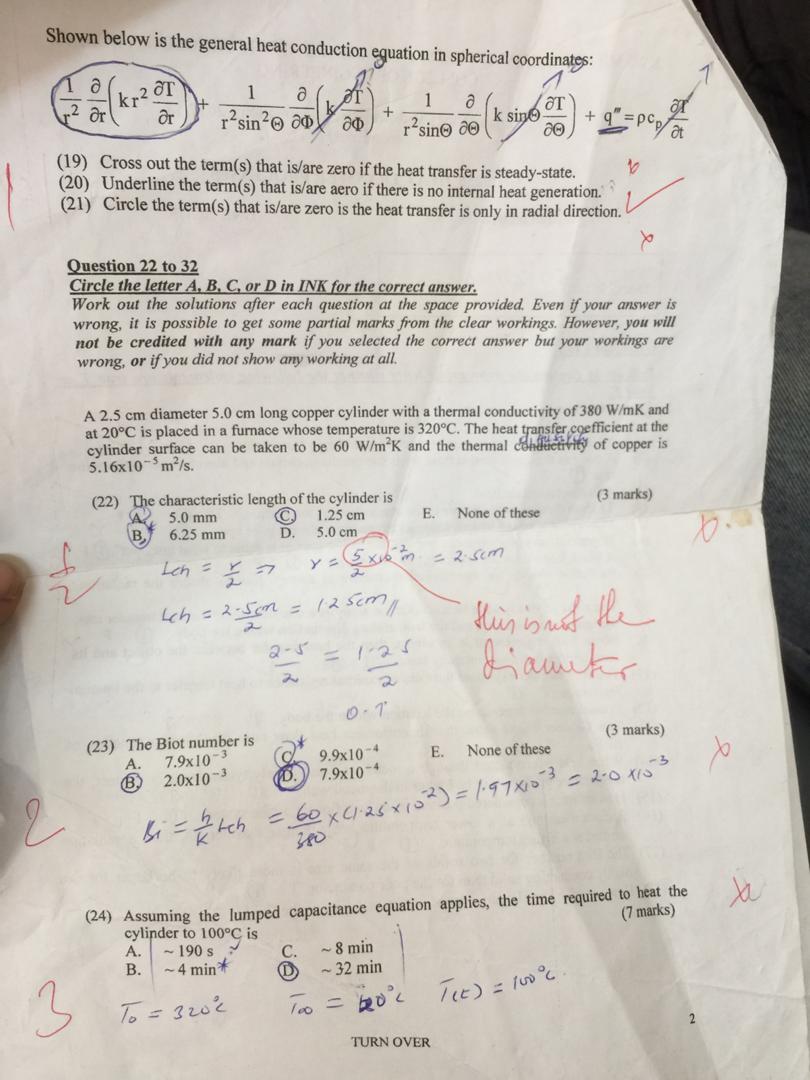 Shown below is the general heat conduction equation in spherical coordinates:
1/r² ∂/∂r (kr² ∂T/∂r) + 1/r²sin²Θ ∂/∂Φ (k ∂T/∂Φ) + 1/r²sinΘ ∂/∂Θ (k sinΘ ∂T/∂Θ) + q''' = ρcp ∂T/∂t
(19) Cross out the term(s) that is/are zero if the heat transfer is steady-state.
(20) Underline the term(s) that is/are aero if there is no internal heat generation.
(21) Circle the term(s) that is/are zero is the heat transfer is only in radial direction.
1
Question 22 to 32
Circle the letter A, B, C, or D in INK for the correct answer.
Work out the solutions after each question at the space provided. Even if your answer is
wrong, it is possible to get some partial marks from the clear workings. However, you will
not be credited with any mark if you selected the correct answer but your workings are
wrong, or if you did not show any working at all.
A 2.5 cm diameter 5.0 cm long copper cylinder with a thermal conductivity of 380 W/mK and
at 20°C is placed in a furnace whose temperature is 320°C. The heat transfer coefficient at the
cylinder surface can be taken to be 60 W/m²K and the thermal conductivity of copper is
5.16x10⁻⁵ m²/s.
(22) The characteristic length of the cylinder is (3 marks)
A. 5.0 mm C. 1.25 cm E. None of these
B. 6.25 mm D. 5.0 cm
Lch = r/2 => r = 5/2 x10⁻²m = 2.5cm
Lch = 2.5cm/2 = 1.25cm
this is not the
diameter
2.5/2 = 1.25/2
(23) The Biot number is (3 marks)
A. 7.9x10⁻³ C. 9.9x10⁻⁴ E. None of these
B. 2.0x10⁻³ D. 7.9x10⁻⁴
2
Bi = h/k Lch = 60/380 x (1.25 x 10⁻²) = 1.97x10⁻³ = 2.0 x10⁻³
(24) Assuming the lumped capacitance equation applies, the time required to heat the
cylinder to 100°C is (7 marks)
A. ~ 190 s C. ~ 8 min
B. ~ 4 min* D ~ 32 min
3
T₀ = 320°C T∞ = 20°C T(t) = 100°C
2
TURN OVER